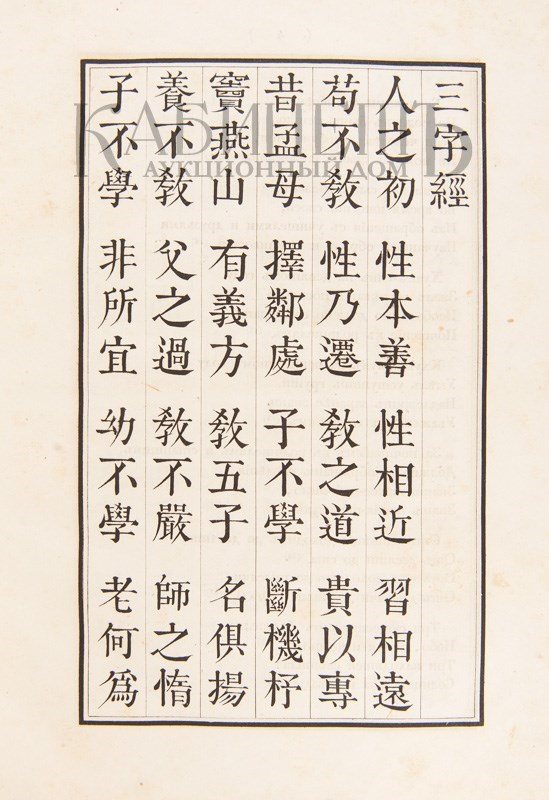 三字經
人之初 性本善 性相近 習相遠
苟不敎 性乃遷 敎之道 貴以專
昔孟母 擇鄰處 子不學 斷機杼
竇燕山 有義方 敎五子 名俱揚
養不敎 父之過 敎不嚴 師之惰
子不學 非所宜 幼不學 老何爲
КАБИНЕТЪ
АУКЦИОННЫЙ ДОМ